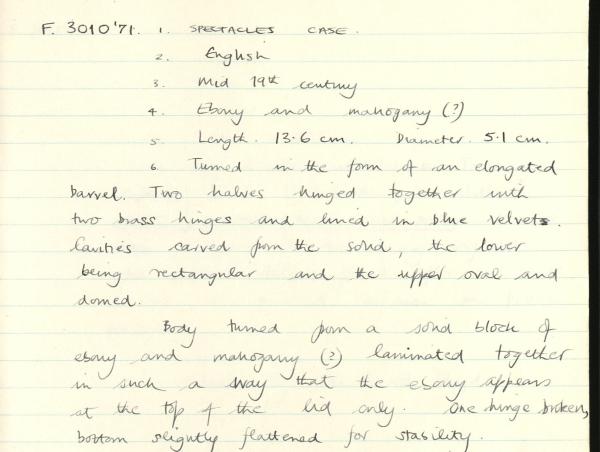 F. 3010'71. 1. SPECTACLES CASE.
2. English
3. Mid 19th century
4. Ebony and mahogany (?)
5. Length. 13.6 cm. Diameter. 5.1 cm.
6. Turned in the form of an elongated
barrel. Two halves hinged together with
two brass hinges and lined in blue velvet.
Cavities carved from the solid, the lower
being rectangular and the upper oval and
domed.
Body turned from a solid block of
ebony and mahogany (?) laminated together
in such a way that the ebony appears
at the top of the lid only. One hinge broken,
bottom slightly flattened for stability.